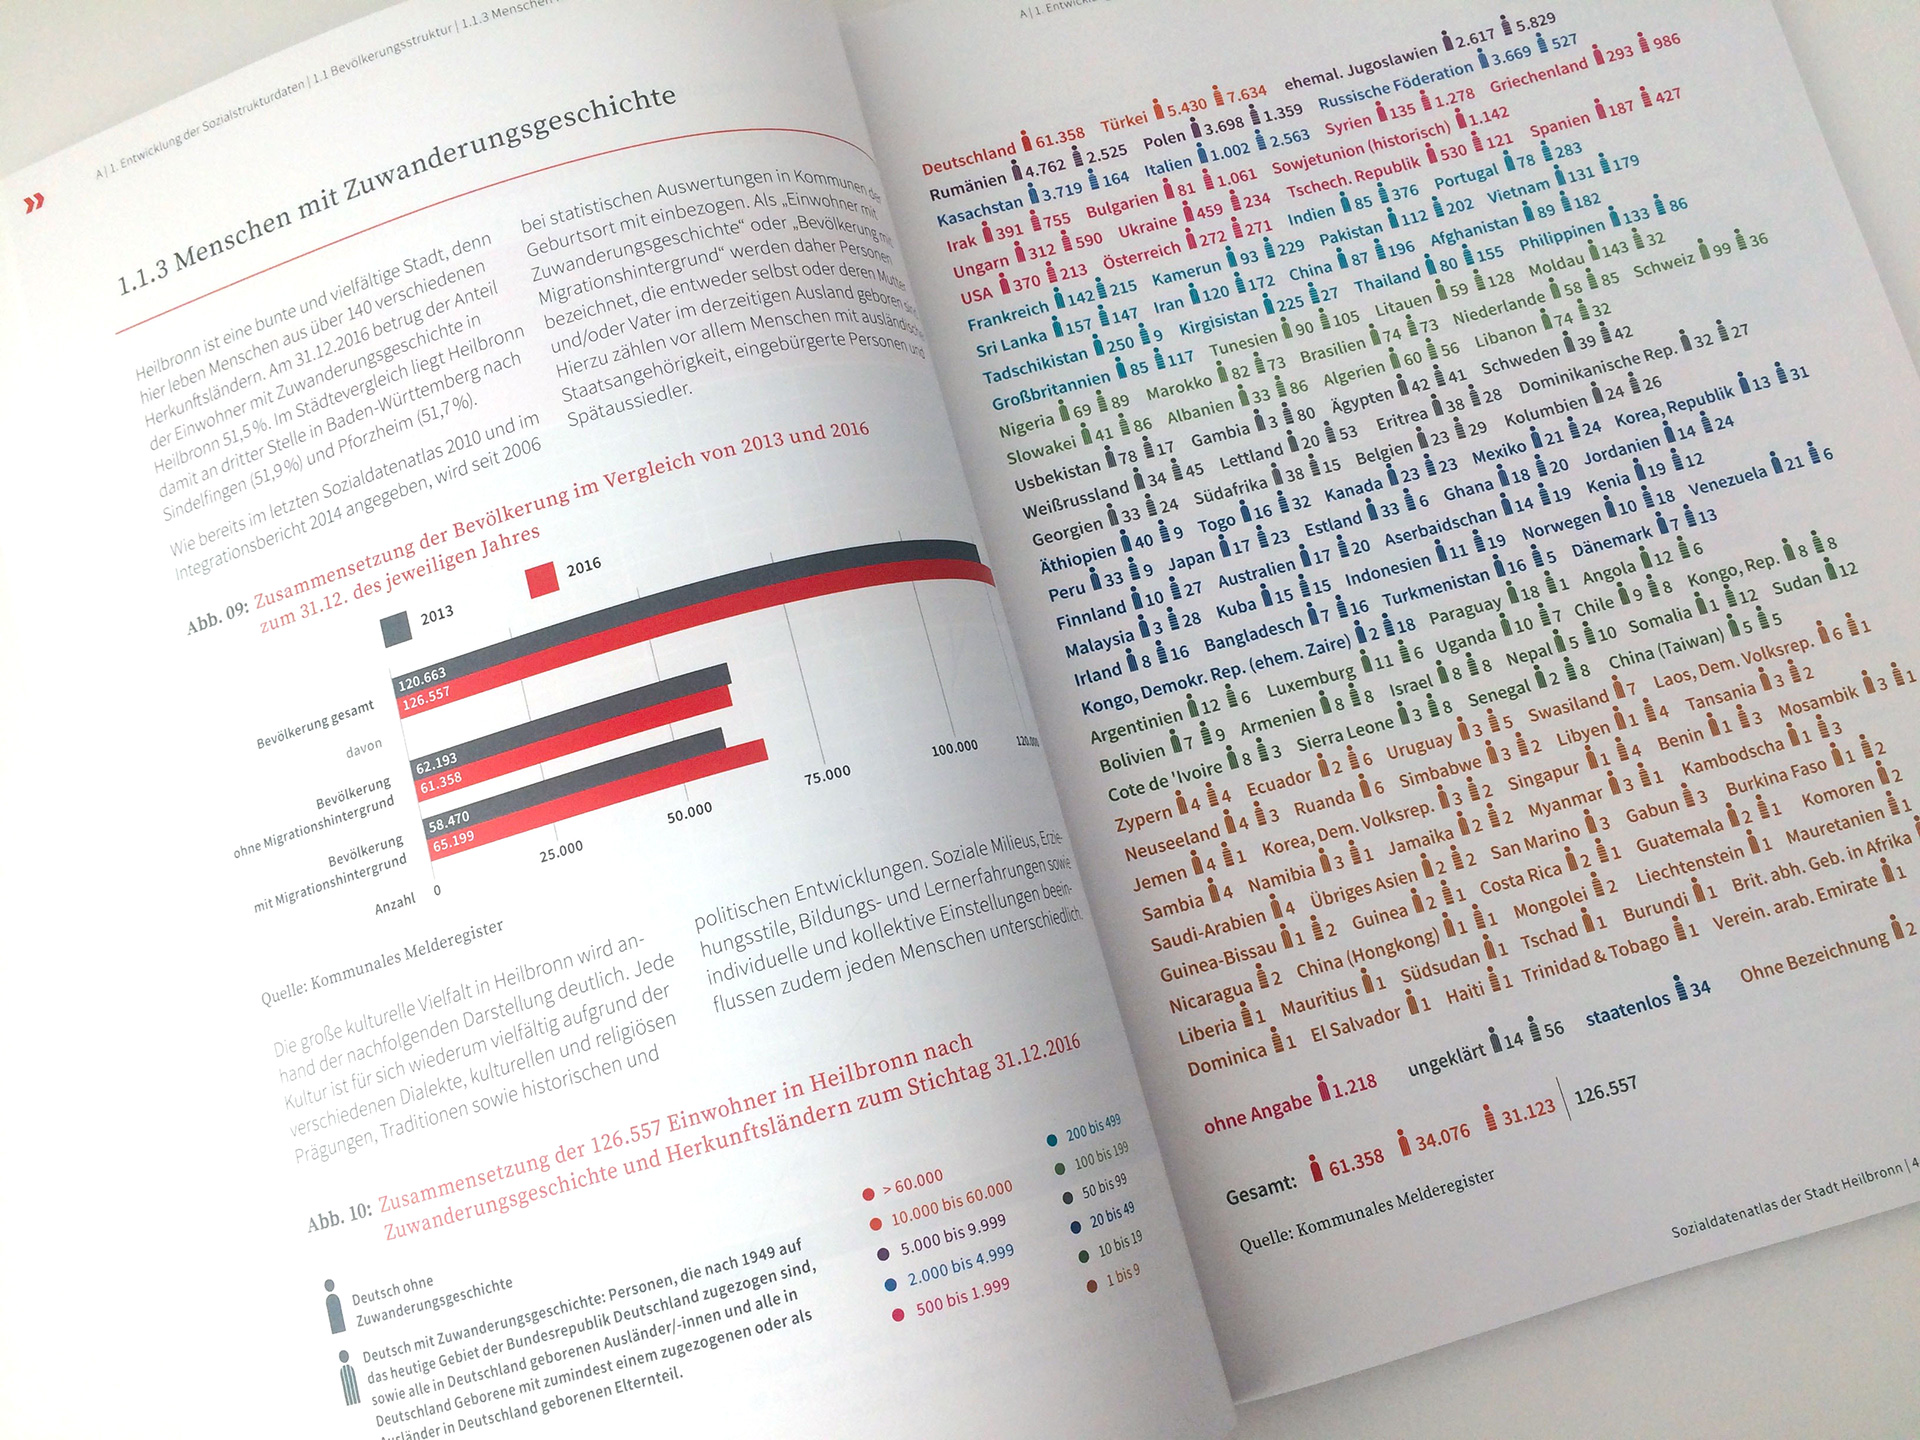 A | 1. Entwicklung der Sozialstrukturdaten | 1.1 Bevölkerungsstruktur | 1.1.3 Menschen
»
1.1.3 Menschen mit Zuwanderungsgeschichte
Heilbronn ist eine bunte und vielfältige Stadt, denn
hier leben Menschen aus über 140 verschiedenen
Herkunftsländern. Am 31.12.2016 betrug der Anteil
der Einwohner mit Zuwanderungsgeschichte in
Heilbronn 51,5 %. Im Städtevergleich liegt Heilbronn
damit an dritter Stelle in Baden-Württemberg nach
Sindelfingen (51,9 %) und Pforzheim (51,7 %).
Wie bereits im letzten Sozialdatenatlas 2010 und im
Integrationsbericht 2014 angegeben, wird seit 2006
bei statistischen Auswertungen in Kommunen der
Geburtsort mit einbezogen. Als „Einwohner mit
Zuwanderungsgeschichte“ oder „Bevölkerung mit
Migrationshintergrund“ werden daher Personen
bezeichnet, die entweder selbst oder deren Mutter
und/oder Vater im derzeitigen Ausland geboren sind.
Hierzu zählen vor allem Menschen mit ausländischer
Staatsangehörigkeit, eingebürgerte Personen und
Spätaussiedler.
Abb. 09: Zusammensetzung der Bevölkerung im Vergleich von 2013 und 2016
zum 31.12. des jeweiligen Jahres
2013 2016
Bevölkerung gesamt
120.663
126.557
davon
Bevölkerung
ohne Migrationshintergrund
62.193
61.358
Bevölkerung
mit Migrationshintergrund
58.470
65.199
Anzahl 0 25.000 50.000 75.000 100.000
Quelle: Kommunales Melderegister
Die große kulturelle Vielfalt in Heilbronn wird an-
hand der nachfolgenden Darstellung deutlich. Jede
Kultur ist für sich wiederum vielfältig aufgrund der
verschiedenen Dialekte, kulturellen und religiösen
Prägungen, Traditionen sowie historischen und
politischen Entwicklungen. Soziale Milieus, Erzie-
hungsstile, Bildungs- und Lernerfahrungen sowie
individuelle und kollektive Einstellungen beein-
flussen zudem jeden Menschen unterschiedlich.
Abb. 10: Zusammensetzung der 126.557 Einwohner in Heilbronn nach
Zuwanderungsgeschichte und Herkunftsländern zum Stichtag 31.12.2016
Deutsch ohne
Zuwanderungsgeschichte
Deutsch mit Zuwanderungsgeschichte: Personen, die nach 1949 auf
das heutige Gebiet der Bundesrepublik Deutschland zugezogen sind,
sowie alle in Deutschland geborenen Ausländer/-innen und alle in
Deutschland Geborene mit zumindest einem zugezogenen oder als
Ausländer in Deutschland geborenen Elternteil.
> 60.000
10.000 bis 60.000
5.000 bis 9.999
2.000 bis 4.999
500 bis 1.999
200 bis 499
100 bis 199
50 bis 99
20 bis 49
10 bis 19
1 bis 9
Deutschland 61.358 Türkei 5.430 7.634 ehemal. Jugoslawien 2.617 5.829
Rumänien 4.762 2.525 Polen 3.698 1.359 Russische Föderation 3.669 527
Kasachstan 3.719 164 Italien 1.002 2.563 Syrien 135 1.278 Griechenland 293 986
Irak 391 755 Bulgarien 81 1.061 Sowjetunion (historisch) 1.142
Ungarn 312 590 Ukraine 459 234 Tschech. Republik 530 121 Spanien 187 427
USA 370 213 Österreich 272 271 Indien 85 376 Portugal 78 283
Frankreich 142 215 Kamerun 93 229 Pakistan 112 202 Vietnam 131 179
Sri Lanka 157 147 Iran 120 172 China 87 196 Afghanistan 89 182
Tadschikistan 250 9 Kirgisistan 225 27 Thailand 80 155 Philippinen 133 86
Großbritannien 85 117 Tunesien 90 105 Litauen 59 128 Moldau 143 32
Nigeria 69 89 Marokko 82 73 Brasilien 74 73 Niederlande 58 85 Schweiz 99 36
Slowakei 41 86 Albanien 33 86 Algerien 60 56 Libanon 74 32
Usbekistan 78 17 Gambia 3 80 Ägypten 42 41 Schweden 39 42
Weißrussland 34 45 Lettland 20 53 Eritrea 38 28 Dominikanische Rep. 32 27
Georgien 33 24 Südafrika 38 15 Belgien 23 29 Kolumbien 24 26
Äthiopien 40 9 Togo 16 32 Kanada 23 23 Mexiko 21 24 Korea, Republik 13 31
Peru 33 9 Japan 17 23 Estland 33 6 Ghana 18 20 Jordanien 14 24
Finnland 10 27 Australien 17 20 Aserbaidschan 14 19 Kenia 19 12
Malaysia 3 28 Kuba 15 15 Indonesien 11 19 Norwegen 10 18 Venezuela 21 6
Irland 8 16 Bangladesch 7 16 Turkmenistan 16 5 Dänemark 7 13
Kongo, Demokr. Rep. (ehem. Zaire) 2 18 Paraguay 18 1 Angola 12 6
Argentinien 12 6 Luxemburg 11 6 Uganda 10 7 Chile 9 8 Kongo, Rep. 8 8
Bolivien 7 9 Armenien 8 8 Israel 8 8 Nepal 5 10 Somalia 1 12 Sudan 12
Cote de 'Ivoire 8 3 Sierra Leone 3 8 Senegal 2 8 China (Taiwan) 5 5
Zypern 4 4 Ecuador 2 6 Uruguay 3 5 Swasiland 7 Laos, Dem. Volksrep. 6 1
Neuseeland 4 3 Ruanda 6 Simbabwe 3 2 Libyen 1 4 Tansania 3 2
Jemen 4 1 Korea, Dem. Volksrep. 3 2 Singapur 1 4 Benin 1 3 Mosambik 3 1
Sambia 4 Namibia 3 1 Jamaika 2 2 Myanmar 3 1 Kambodscha 1 3
Saudi-Arabien 4 Übriges Asien 2 2 San Marino 3 Gabun 3 Burkina Faso 1 2
Guinea-Bissau 1 2 Guinea 2 1 Costa Rica 2 1 Guatemala 2 1 Komoren 2
Nicaragua 2 China (Hongkong) 1 1 Mongolei 2 Liechtenstein 1 Mauretanien 1
Liberia 1 Mauritius 1 Südsudan 1 Tschad 1 Burundi 1 Brit. abh. Geb. in Afrika
Dominica 1 El Salvador 1 Haiti 1 Trinidad & Tobago 1 Verein. arab. Emirate 1
ohne Angabe 1.218 ungeklärt 14 56 staatenlos 34 Ohne Bezeichnung 2
Gesamt: 61.358 34.076 31.123 126.557
Quelle: Kommunales Melderegister
Sozialdatenatlas der Stadt Heilbronn | 4